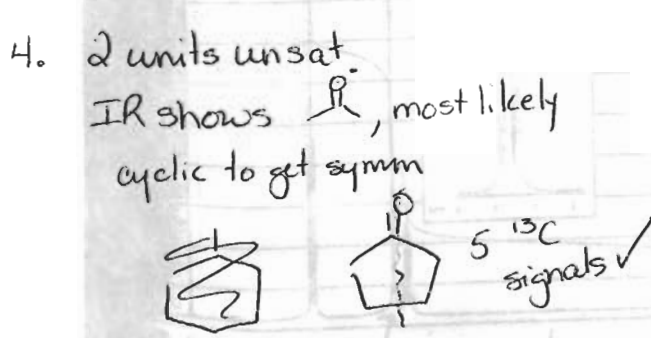 4. 2 units unsat.
IR shows O, most likely
cyclic to get symm
O
5 ¹³C
signals ✓